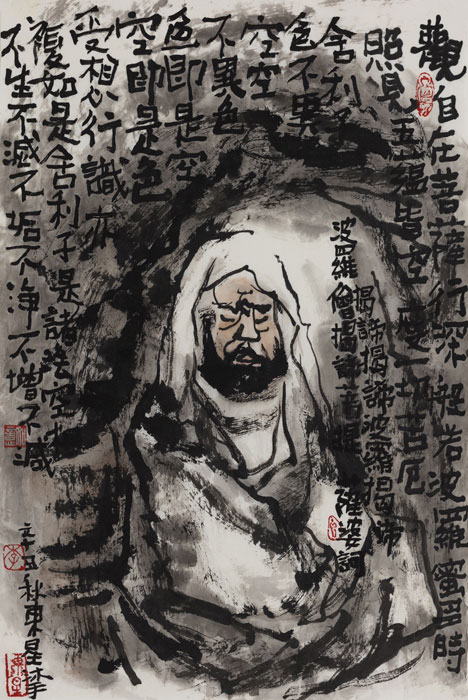 觀自在菩薩行深般若波羅蜜多時
照見五蘊皆空度一切苦厄
舍利子
色不異
空空
不異色
色即是空
空即是色
受想行識亦
複如是舍利子是諸法空相
不生不滅不垢不淨不增不減
揭諦揭諦波羅揭諦
波羅僧揭諦菩提
薩婆訶
丑秋東星